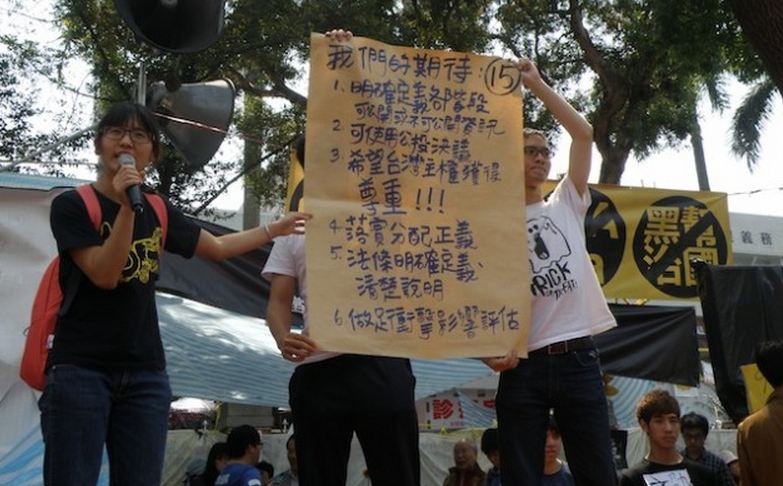 我們的期待: ⑮
1. 明確定義各階段
可公開或不可公開資訊
2. 可使用公投決議
3. 希望台灣主權獲得
尊重!!!
4. 落實分配正義
5. 法條明確定義、
清楚說明
6. 做足衝擊影響評估
黑
義務
診